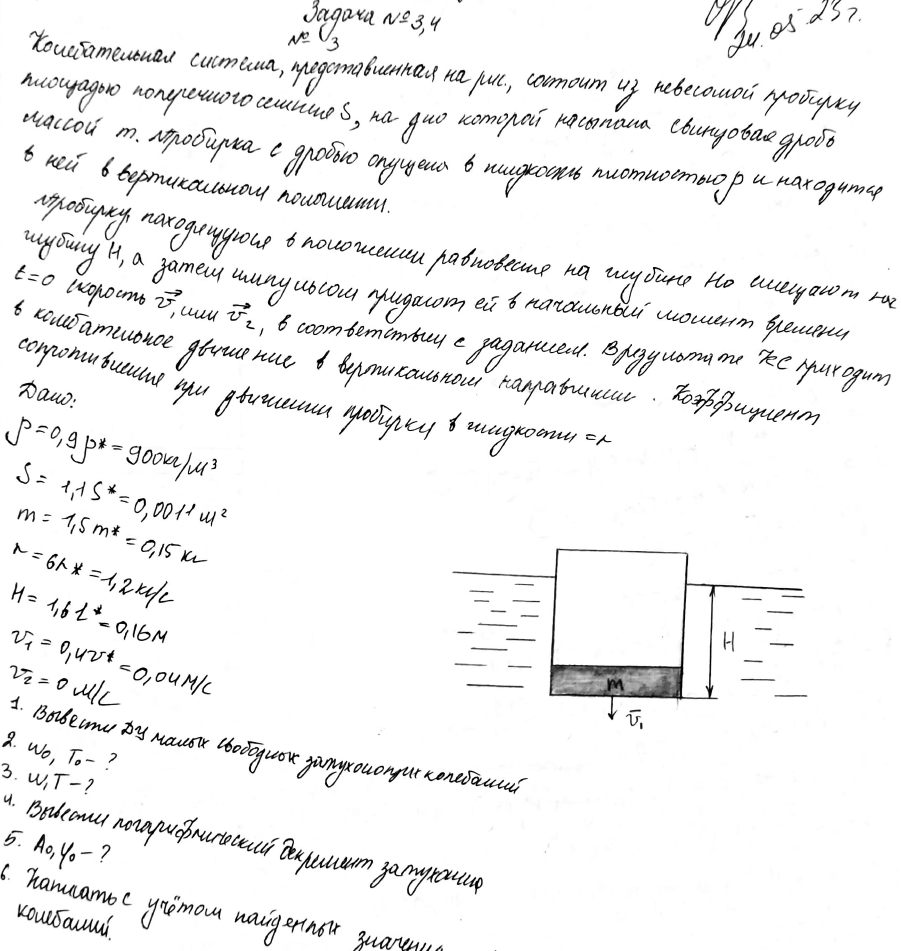 Задача № 3,4
24.05.23г.
№ 3
Колебательная система, представленная на рис, состоит из невесомой пробирки
площадью поперечного сечения S, на дно которой насыпана свинцовая дробь
массой m. Пробирка с дробью опущена в жидкость плотностью ρ и находится
в ней в вертикальном положении.
Пробирку, находящуюся в положении равновесия на глубине H0 смещают на
глубину H, а затем импульсом придают ей в начальный момент времени
t=0 скорость v⃗₁ или v⃗₂, в соответствии с заданием. В результате КС приходит
в колебательное движение в вертикальном направлении. Коэффициент
сопротивления при движении пробирки в жидкости = r
Дано:
ρ=0,9ρ* = 900кг/м³
S = 1,1S* = 0,0011 м²
m = 1,5m* = 0,15 кг
r = 6r* = 1,2 кг/с
H = 1,6l* = 0,16м
v₁ = 0,4v* = 0,04м/с
v₂ = 0 м/с
H
m
v̄₁
1. Вывести ДУ малых свободных затухающих колебаний
2. ω₀, T₀ - ?
3. ω, T - ?
4. Вывести логарифмический декремент затухания
5. A₀, φ₀ - ?
6. Написать с учётом найденных значений
колебаний.